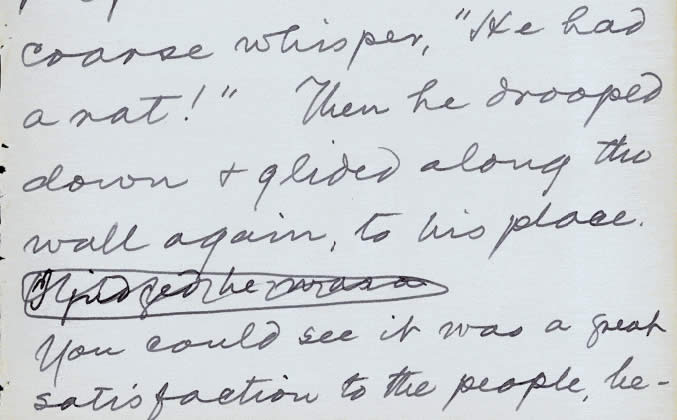 coarse whisper, "He had
a rat!" Then he drooped
down & glided along the
wall again, to his place.
I judged he was a
You could see it was a great
satisfaction to the people, be-